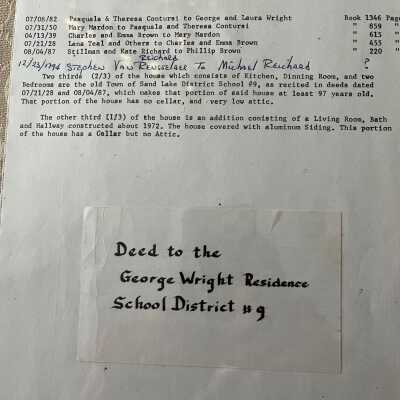 07/08/82 Pasquale & Theresa Contursi to George and Laura Wright Book 1346 Page
07/31/50 Mary Mardon to Pasquale and Theresa Contursi " 859 "
04/13/39 Charles and Emma Brown to Mary Mardon " 615 "
07/21/28 Lana Teal and Others to Charles and Emma Brown " 455 "
08/04/87 Stillman and Kate Richard to Phillip Brown " 220 "
Reichard
12/23/1794 Stephen Van Rensselaer To Michael Reichard ?
Two thirds (2/3) of the house which consists of Kitchen, Dinning Room, and two
Bedrooms are the old Town of Sand Lake District School #9, as recited in deeds dated
07/21/28 and 08/04/87, which makes that portion of said house at least 97 years old.
That portion of the house has no cellar, and very low attic.
The other third (1/3) of the house is an addition consisting of a Living Room, Bath
and Hallway constructed about 1972. The house covered with aluminum Siding. This portion
of the house has a Cellar but no Attic.
Deed to the
George Wright Residence
School District #9